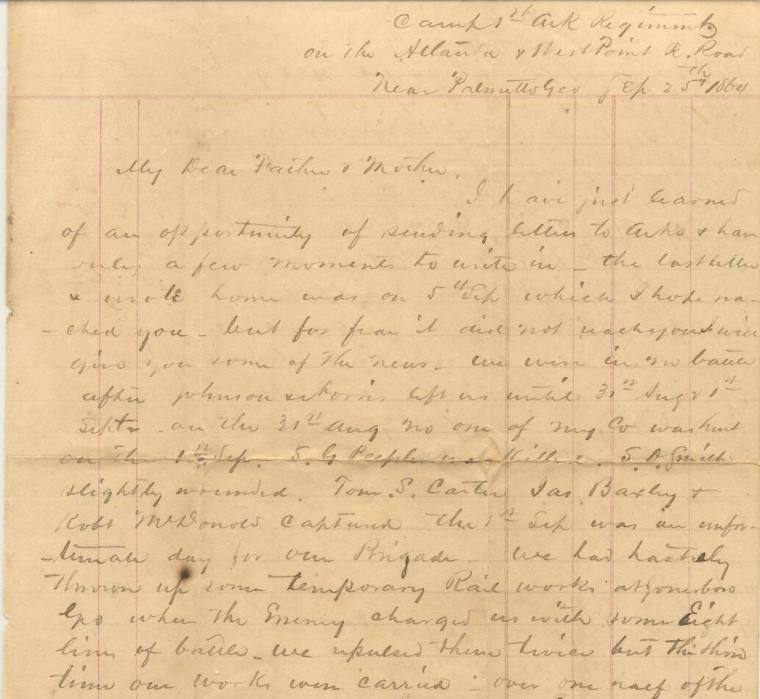 Camp 1st Ark Regiment
on the Atlanta & West Point R. Road
Near Palmetto Geo Sep 25th 1864
My Dear Father & Mother,
I have just learned
of an opportunity of sending letters to Arks & have
only a few moments to write in - the last letter
I wrote home was on 5th Sep which I hope rea-
-ched you - but for fear it did not reach you I will
give you some of the news - we were in no battle
after Johnson & left us until 31st Aug & 1st
Sept - on the 31st Aug no one of my Co was hurt
on the 1st Sep. S. G Peeples was killed. S. A. Smith
slightly wounded. Tom. S. Carter Jas Baxley &
Robt McDonold captured the 1st Sep was an unfor-
-tunate day for our Brigade - we had hastely
thrown up some temporary Rail works at Jonesboro
Geo when the Enemy charged us with some Eight
lines of battle - we repulsed them twice but the third
time our works were carried - over one half of the